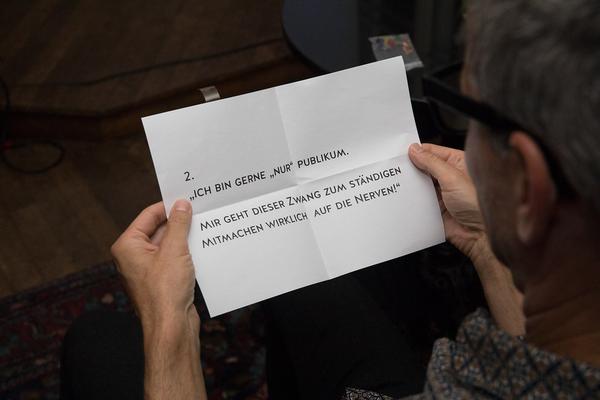 2.
„ICH BIN GERNE „NUR“ PUBLIKUM.
MIR GEHT DIESER ZWANG ZUM STÄNDIGEN
MITMACHEN WIRKLICH AUF DIE NERVEN!“